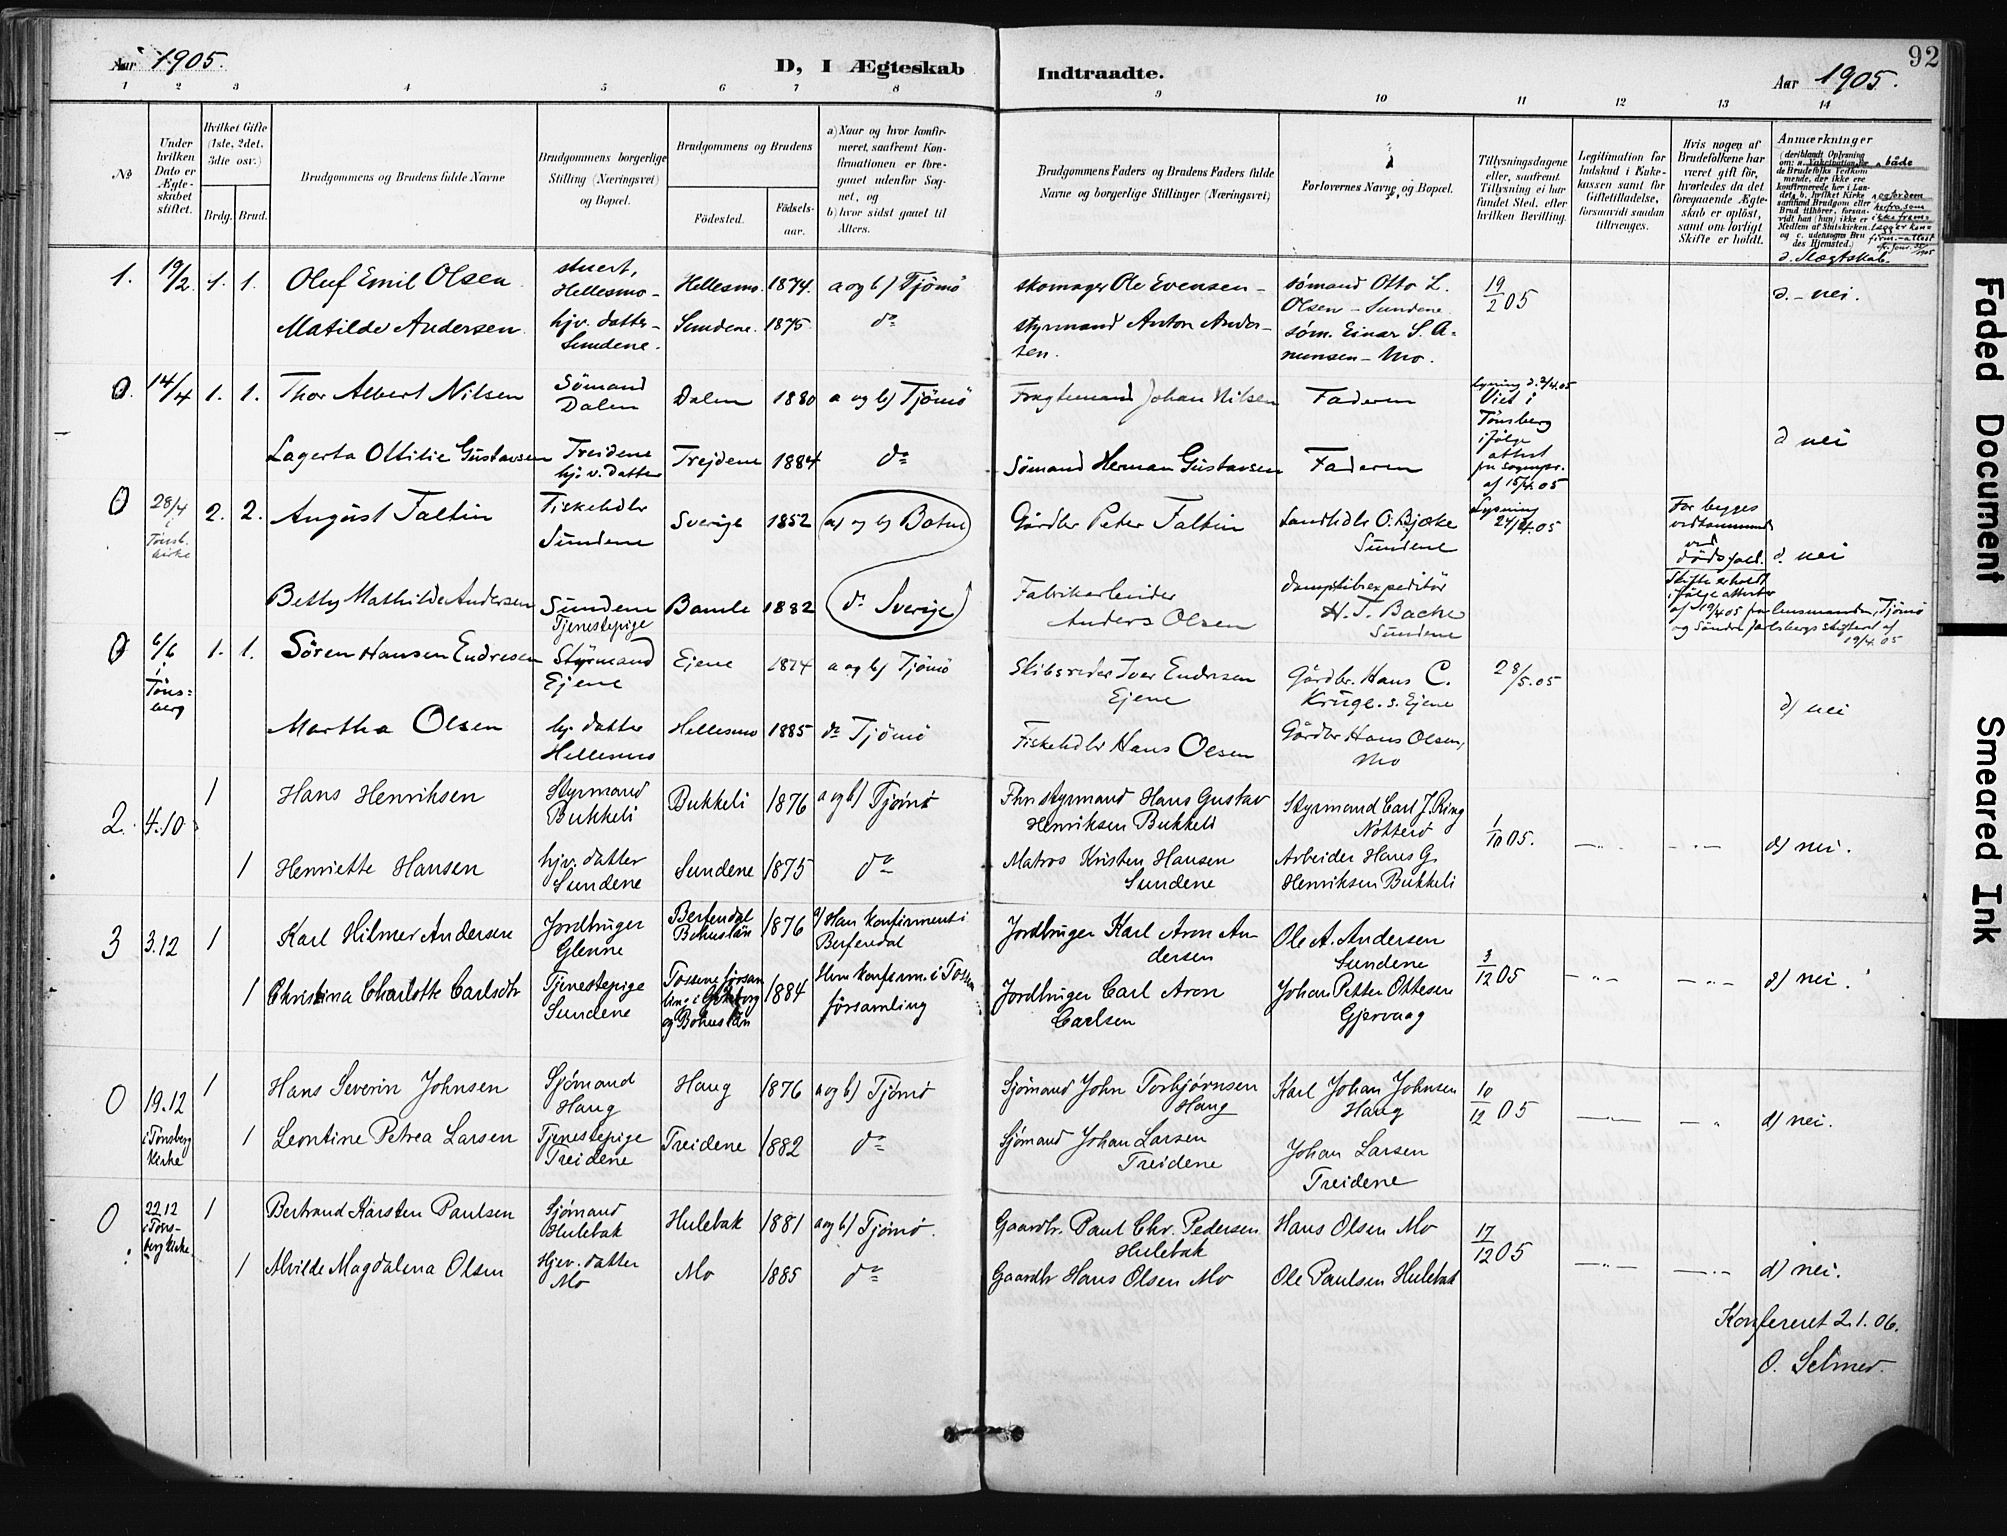 Aar 1905.
D, I Ægteskab
Indtraadte.
92
Aar 1905.
1 2 3 4 5 6 7 8 9 10 11 12 13 14
No
Under hvilken Dato er Ægteskabet stiftet.
Hvilket Gifte (1ste, 2det, 3die osv.)
Brdg. Brud.
Brudgommens og Brudens fulde Navne
Brudgommens borgerlige Stilling (Næringsvei) og Bopæl.
Brudgommens og Brudens
Fødested.
Fødselsaar.
a) Naar og hvor konfirmeret, saafremt Konfirmationen er foregaaet udenfor Sognet, og
b) hvor sidst gaaet til Alters.
Brudgommens Faders og Brudens Faders fulde Navne og borgerlige Stillinger (Næringsvei)
Forlovernes Navne og Bopæl.
Tillysningsdagene eller, saafremt Tillysning ei har fundet Sted, efter hvilken Bevilling.
Legitimation for Indskud i Enkekassen samt for Giftetilladelse, forsaavidt saadan tiltrænges.
Hvis nogen af Brudefolkene har været gift før, hvorledes da det foregaaende Ægteskab er opløst, samt om lovligt Skifte er holdt.
Anmærkninger
d. Slægtskab.
1. 19/2 1. 1. Oluf Emil Olsen
stuert, Hellesmo-
Hellesmo. 1874. a og b) Tjömö
skomager Ole Evensen-
sømand Otto L. Olsen - Sundene
19/2 05
d. - nei.
Matilde Andersen.
hjv. datter- Sundene.
Sundene. 1875. do
styrmand Anton Andersen.
søm. Einar S. Amunsen - Mo.
0. 14/4 1. 1. Thor Albert Nilsen
Sömand Dalen
Dalen 1880 a og b) Tjömö
Fragtemand Johan Nilsen
Faderen
Lysning d. 2/4.05
Viet i Tønsberg ifølge attest fra sognepr. af 15/4.05
d nei
Lagerta Ottilie Gustavsen
Treidene hj. v. datter
Trejdene 1884 do
Sömand Herman Gustavsen
Faderen
0 28/4 i Tønsb. kirke 2. 2. August Faltin
Fiskehdlr Sundene
Sverige 1852 a) og b) Botne
Gårdbr Peter Faltin
Landhdlr O. Bjoke Sundene
Lysning 24/4.05
For begges vedkommende ved dödsfall.
d. nei
Skifte er holdt ifølge attester af 19/4 05 fra lensmanden, Tjömö og Söndre Jarlsbergs skifteret af 19/4.05
Betty Mathilde Andersen
Sundene Tjenestepige
Bamle 1882 do Sverige
Fabrikarbeider Anders Olsen
dampskibsexpeditör H. T. Bache Sundene
0 6/6 i Tönsberg 1. 1. Sören Hansen Endresen
Styrmand Ejene
Ejene 1874 a og b) Tjömö
Skibsreder Iver Endresen Ejene
Gårdbr. Hans C. Kruge. s. Ejene
28/5.05
d) nei
Martha Olsen
hj. datter Hellesmo
Hellesmo 1885 do Tjömö
Fiskehdlr Hans Olsen
Gårdbr Hans Olsen, Mo
2. 4.10 1 Hans Henriksen
Styrmand Bukkeli
Bukkeli 1876 a og b) Tjömö
Fhv styrmand Hans Gustav Henriksen Bukkeli
Styrmand Carl J. Ring Nötterö
1/10 05.
d) nei.
1 Henriette Hansen
hjv. datter Sundene
Sundene 1875 do
Matros Kristen Hansen Sundene
Arbeider Hans G. Henriksen Bukkeli
3 3.12 1 Karl Hilmer Andersen
Jordbruger Glenne
Berfendal Bohuslän 1876 a) Han konfirmeret i Berfendal
Jordbruger Karl Aron Andersen
Ole A. Andersen Sundene
3/12 05
d) nei.
1 Christina Charlotte Carlsdtr
Tjenestepige Sundene
Tossene forsamling i Gøteborg og Bohuslän 1884 Hun konfirm. i Tossene forsamling
Jordbruger Carl Aron Carlsen
Johan Petter Ottesen Gjervaag
0 19.12 i Tønsberg Kirke 1 Hans Severin Johnsen
Sjømand Haug
Haug 1876 a og b) Tjømø
Sjømand John Torbjørnsen Haug
Karl Johan Johnsen Haug
10/12 05
d) nei.
1 Leontine Petrea Larsen
Tjenestepige Treidene
Treidene 1882 do
Sjømand Johan Larsen Treidene
Johan Larsen Treidene
0 22.12 i Tønsberg Kirke 1 Bertrand Karsten Paulsen
Sjømand Hulebak
Hulebak 1881 a og b) Tjømø.
Gaardbr. Paul Chr. Pedersen Hulebak
Hans Olsen Mo
17/12 05
1 Alvilde Magdalena Olsen
Hjev. datter Mo
Mo 1885 do
Gaardbr Hans Olsen Mo
Ole Paulsen Hulebak
d) nei.
Konfereret 2.1.06.
O. Selmer.
Faded Document
Smeared Ink